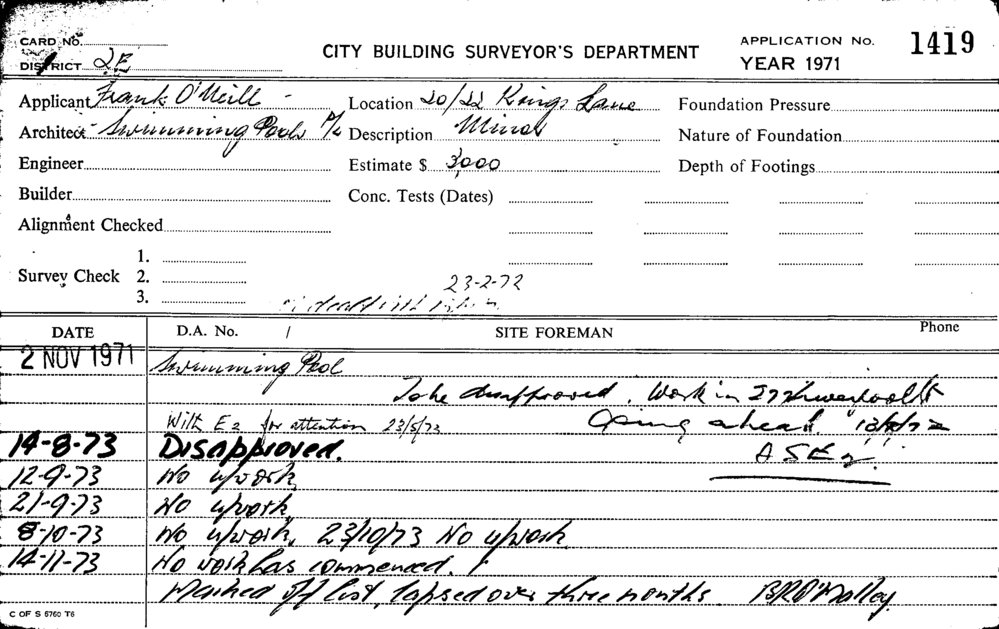 CARD No.
CITY BUILDING SURVEYOR'S DEPARTMENT
APPLICATION No. 1419
DISTRICT 2E
YEAR 1971
Applicant Frank O'Neill - Location 20/22 Kings Lane Foundation Pressure
Architect Swimming Pools P/L Description Minor Nature of Foundation
Engineer Estimate $ 3,000 Depth of Footings
Builder Conc. Tests (Dates)
Alignment Checked
1.
Survey Check 2. 23-2-72
3.
DATE D.A. No. / SITE FOREMAN Phone
2 NOV 1971 Swimming Pool
To be disapproved. Work in
With E2 for attention 23/5/73 Going ahead.
14-8-73 Disapproved. ASE2.
12-9-73 No u/work
21-9-73 No u/work
8-10-73 No u/work, 23/10/73 No u/work
14-11-73 No work has commenced.
Marked off list, lapsed over three months BRO'Malley.
C OF S 5760 T6